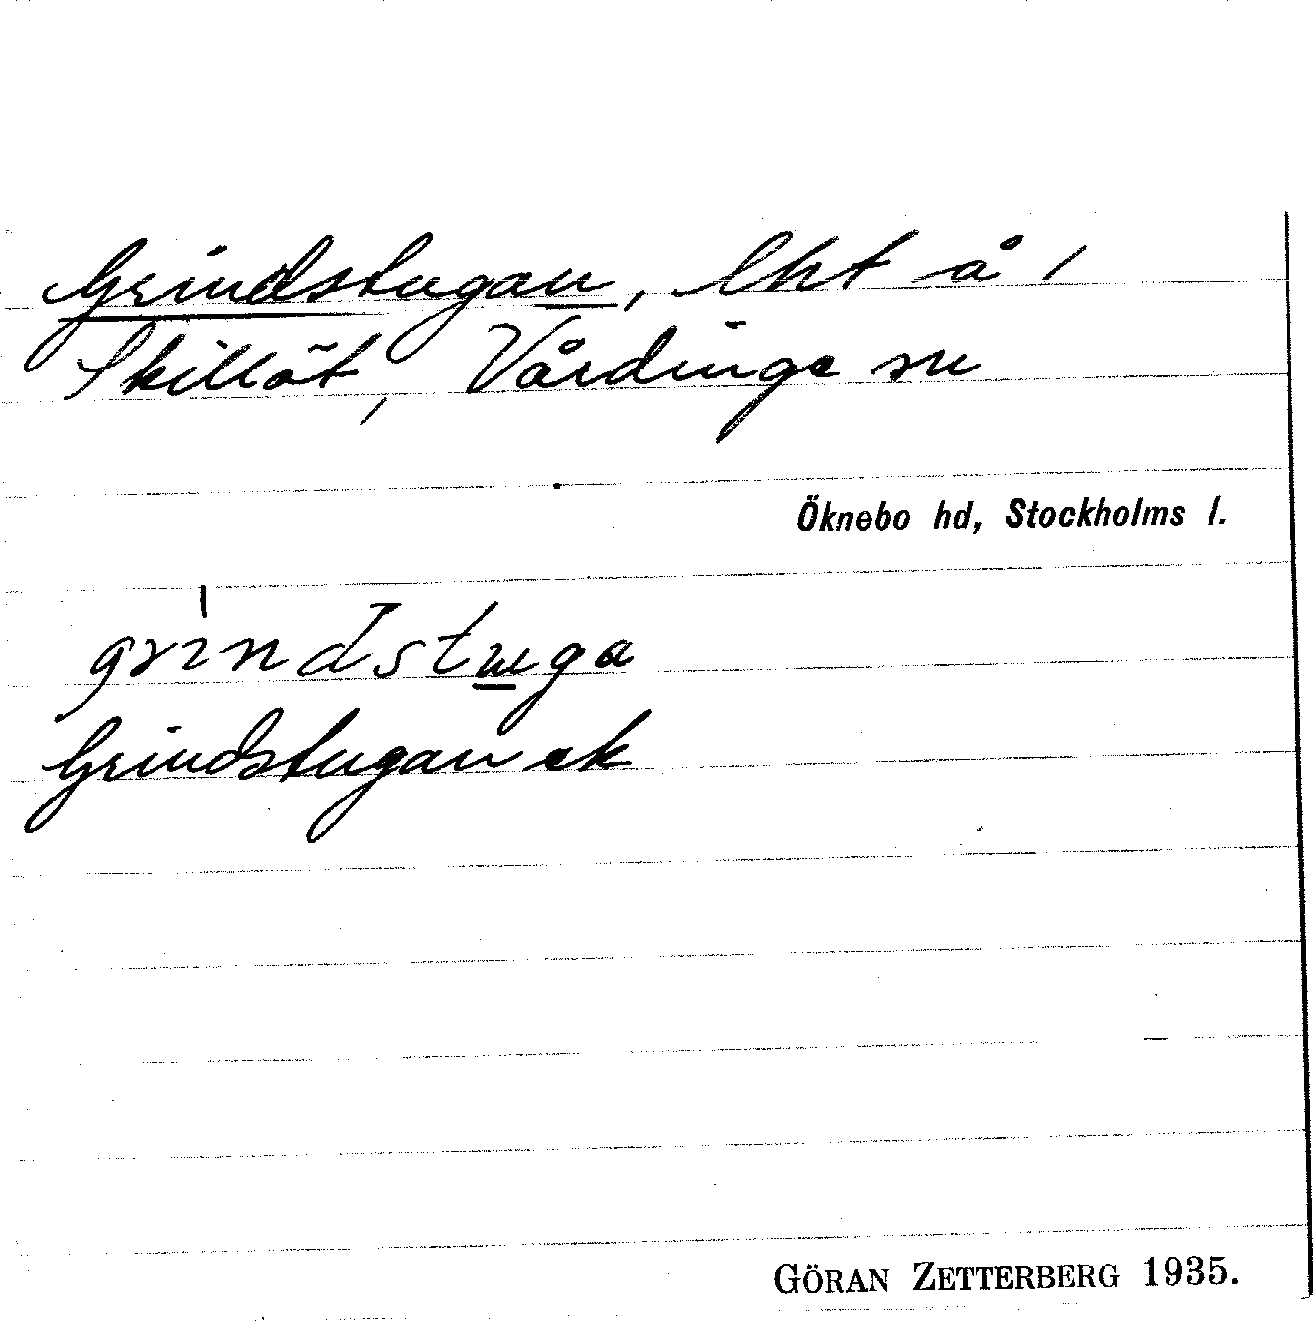 Grindstugan, lht å 1
Skillöt, Vårdinge sn
Öknebo hd, Stockholms l.
grindstuga
Grindstugan ek
GÖRAN ZETTERBERG 1935.